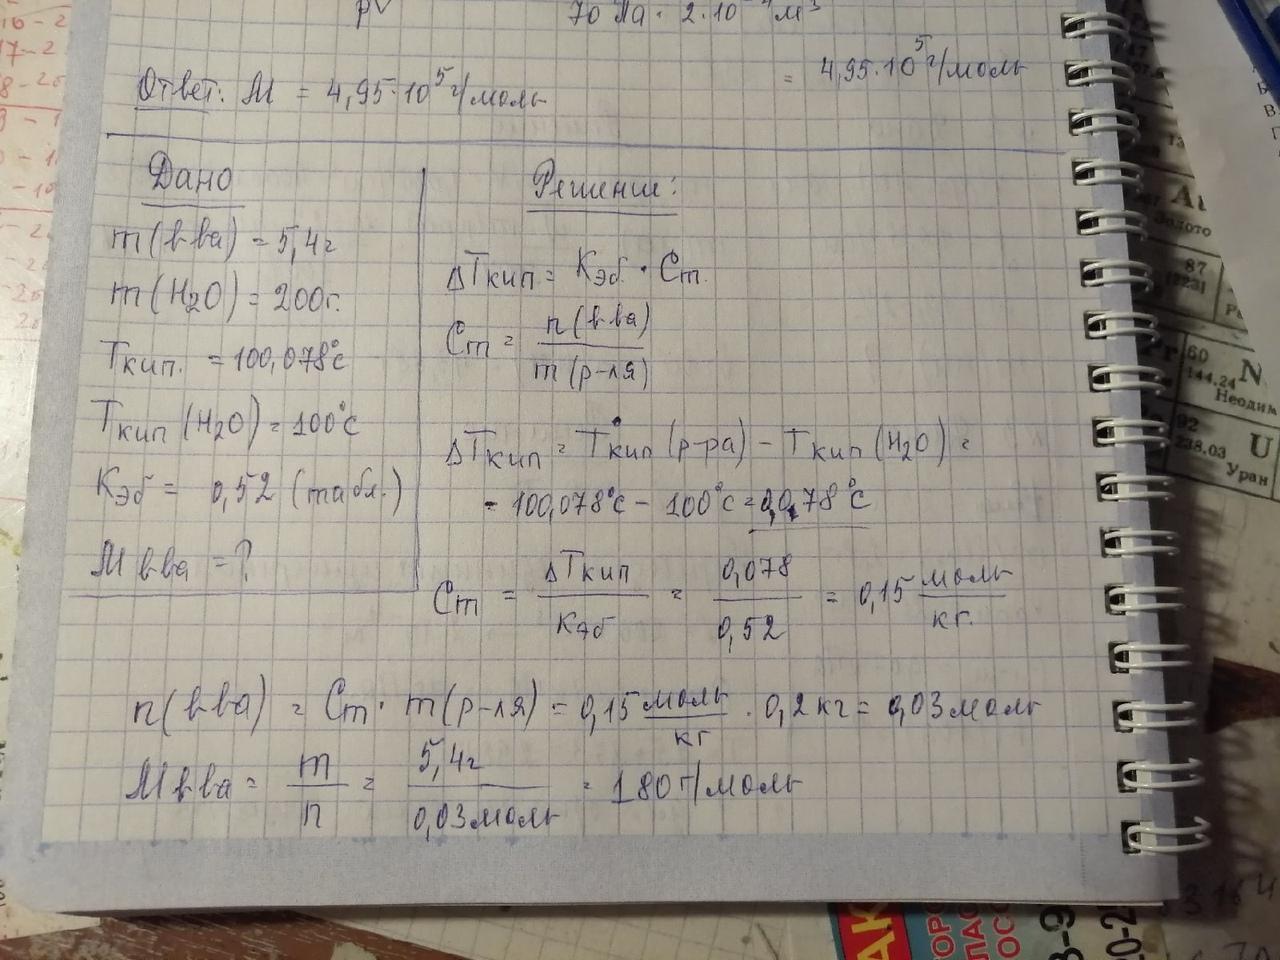 pV 70 Па · 2·10⁻⁴м³
= 4,95·10⁵г/моль
Ответ: М = 4,95·10⁵г/моль
Дано
m(в-ва) = 5,4г
m(H₂O) = 200г.
Tкип. = 100,078°C
Tкип (H₂O) = 100°C
Kэб = 0,52 (табл.)
М в-ва = ?
Решение:
ΔTкип = Kэб · Cm.
Cm = n(в-ва) / m(р-ля)
ΔTкип = Tкип (р-ра) − Tкип (H₂O) =
= 100,078°C − 100°C = 0,078°C
Cm = ΔTкип / Kэб = 0,078 / 0,52 = 0,15 моль / кг.
n(в-ва) = Cm · m(р-ля) = 0,15 моль / кг · 0,2кг = 0,03моль
М в-ва = m / n = 5,4г / 0,03моль = 180 г/моль
87
[223]
Золото
60
144.24
N
Неодим
92
238.03
U
Уран